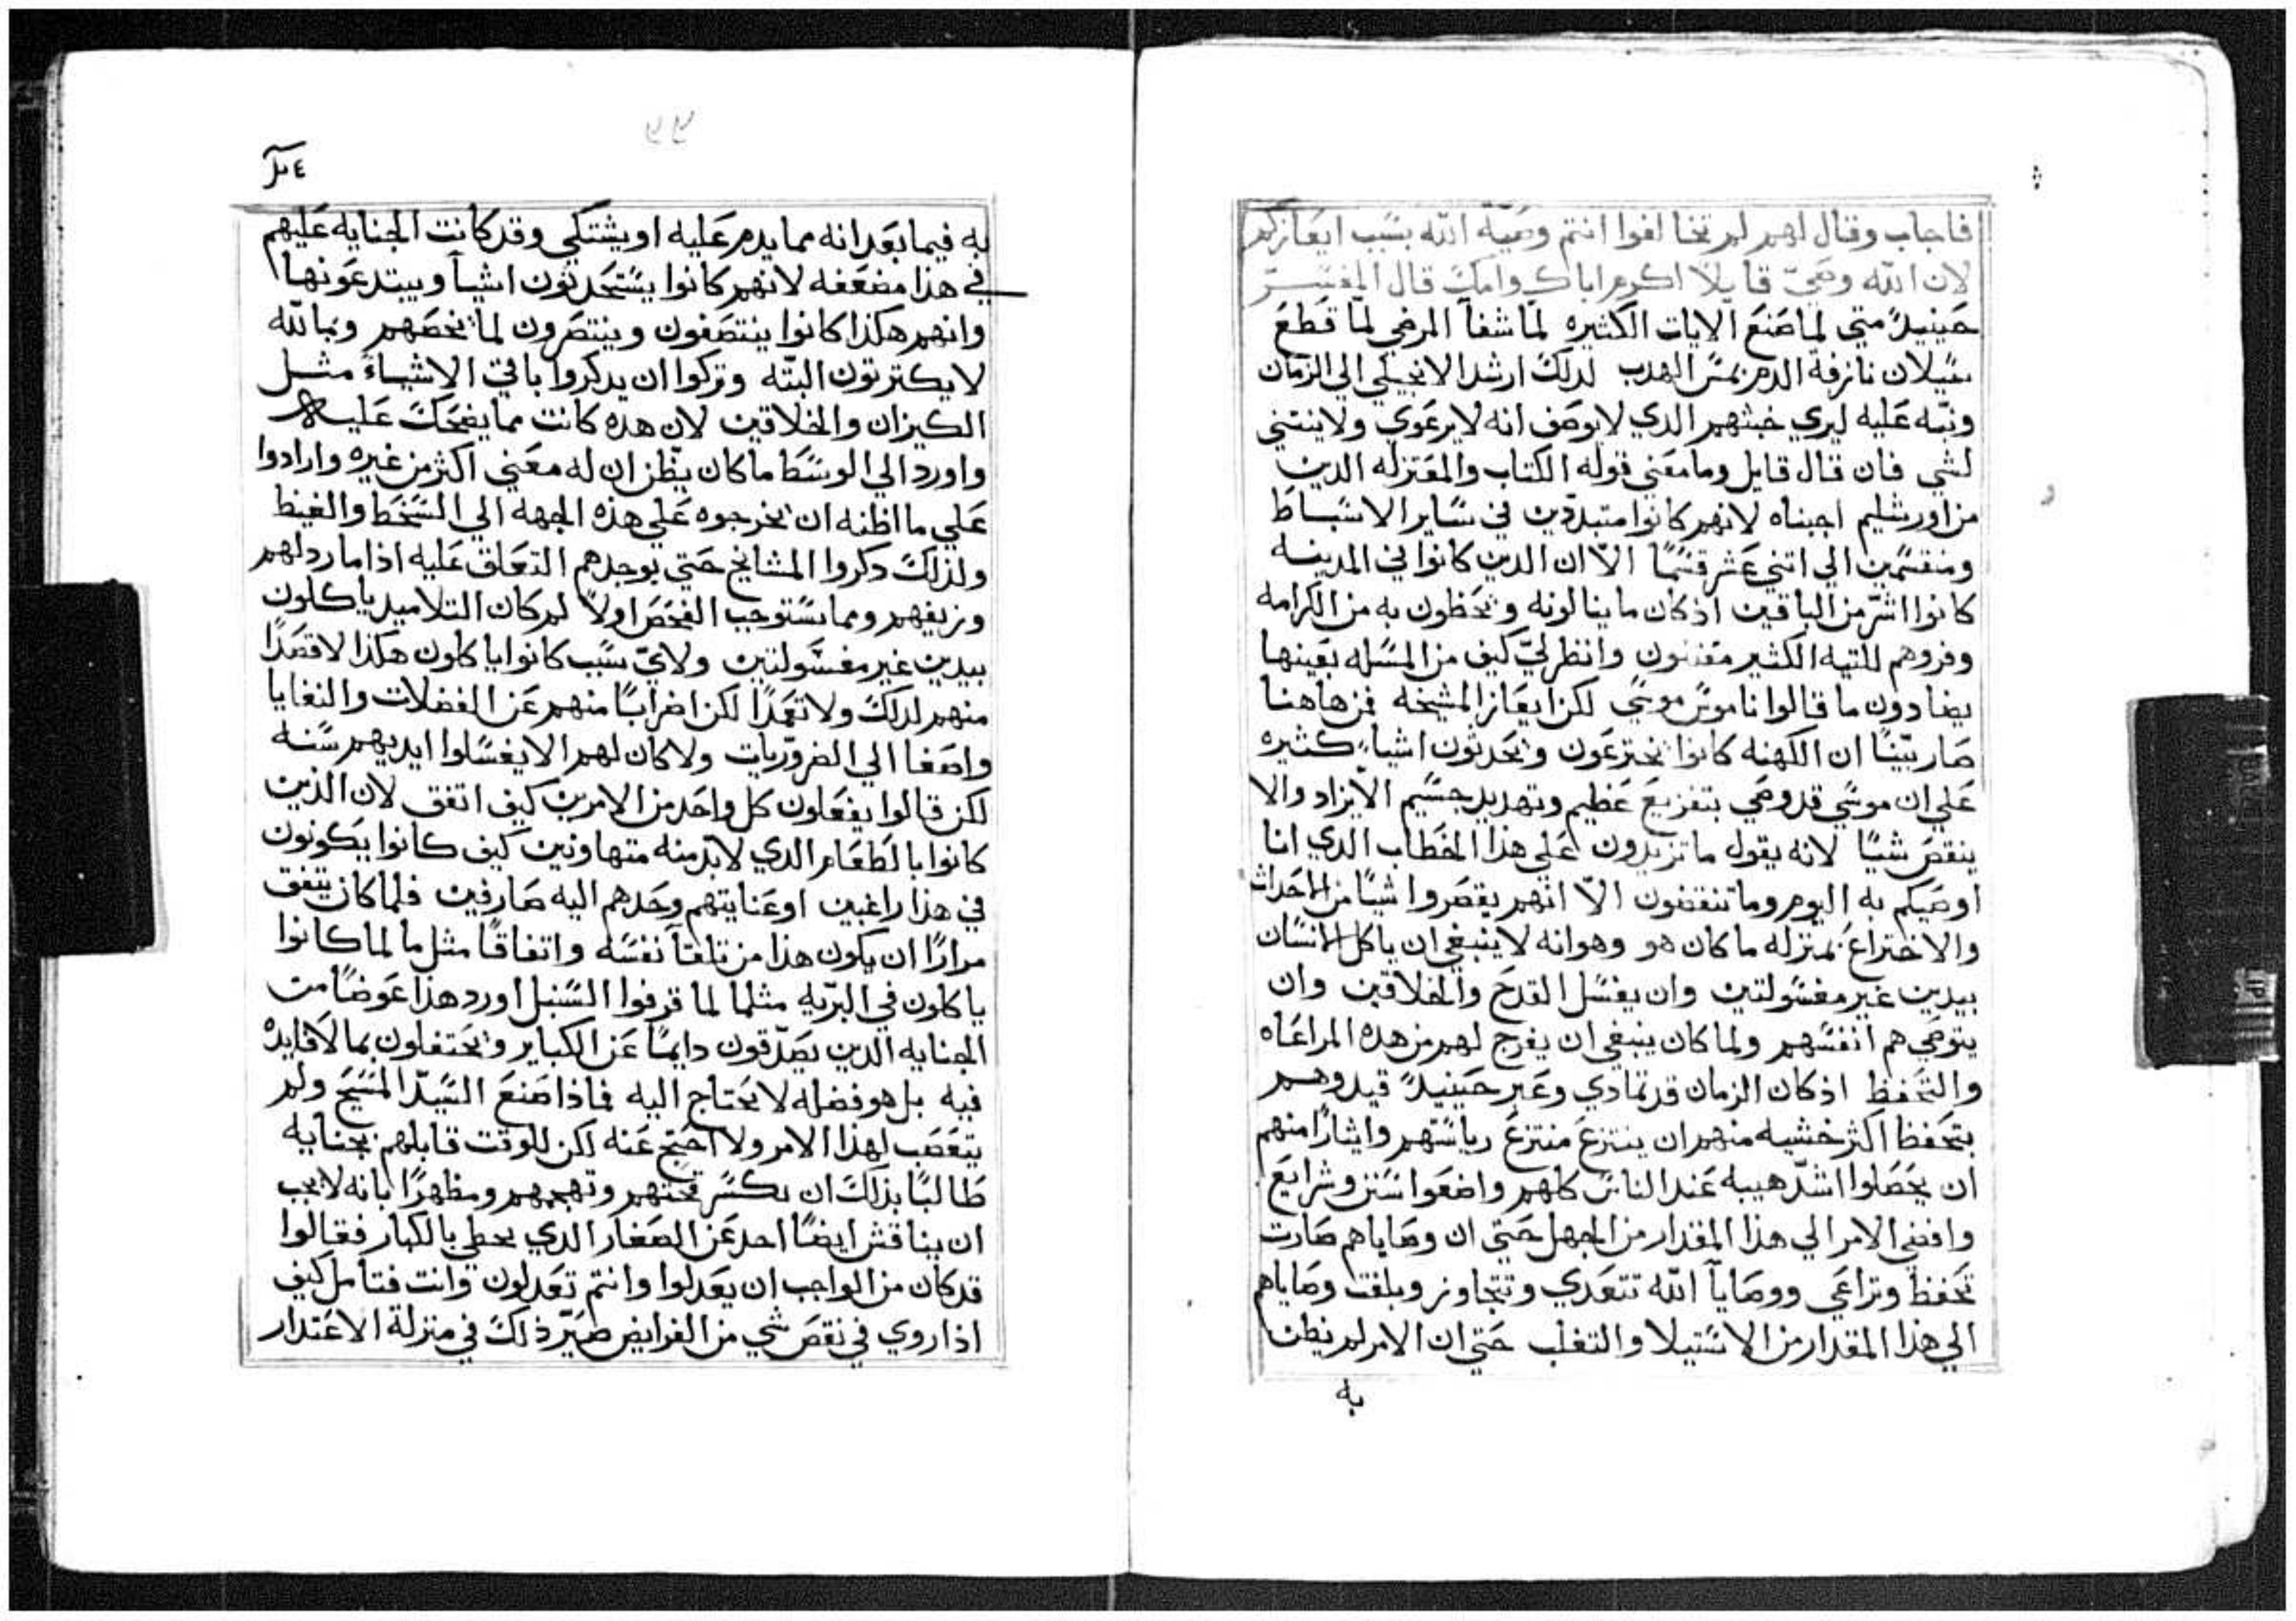 فاجاب وقال لهم لم تخالفوا انتم وصية الله بسبب ايعازكم
لان الله وصيّ قايلاً اكرم اباك وامك قال المفسّر
حينيدً متي لما صنع الايات الكثيره لمّا شفا المرضي لمّا قطع
سيلان نازفة الدم بمسّ الهدب لدلك ارشد الانجيلي الي الزمان
ونبّه عليه ليري خبثهم الدي لا يوصف انه لا يرعوي ولا ينتني
لشي فان قال قايل وما معني قوله الكتاب والمعتزله الدين
من اورشليم اجبناه لانهم كانوا متبدّدين في ساير الاسباط
ومنقسمين الي اتني عشر قسمًا الّا ان الدين كانوا في المدينه
كانوا اشرّ من الباقين اذ كان ما ينالونه ويحظون به من الكرامه
وفروهم للتيه الكثير مقتنون وانظر ليّ كيف من المسله بعينها
يصادون ما قالوا ناموس موسي لكن ايعاز المشيخه فمن هاهنا
صار بيّنًا ان الكهنه كانوا يخترعون ويحدثون اشياء كثيره
علي ان موسي قد وصي بتفزيع عظيم وتهديد جسيم الّا يزاد والا
ينقص شيًا لانه يقول ما تزيدون علي هذا الخطاب الدي انا
اوصيكم به اليوم وما تنقصون الّا انهم يقصروا شيًا من الاحداث
والاختراع بمنزله ما كان هو وهو انه لا ينبغي ان ياكل الانسان
بيدين غير مغسولتين وان يغسل القدح والخلاقين وان
يتوصي هم انفسهم ولما كان ينبغي ان يفرج لهم من هده المراعاه
والتحفظ اذ كان الزمان قد تمادي وعبر حينيدً قيدوهم
بتحفظ اكثر خشيه منهم ان ينتزع منتزع رياستهم وايثارًا منهم
ان يحصلوا اشدّ هيبه عند الناس كلهم واضعوا سنن وشرايع
وافضي الامر الي هذا المقدار من الجهل حتي ان وصاياهم صارت
تحفظ وتراعي ووصايا الله تتعدي وتتجاوز وبلغت وصاياهم
الي هذا المقدار من الاستيلا والتغلب حتي ان الامر لم يظن
به
به فيما بعد انه مما يدم عليه او يشتكي وقد كانت الجنايه عليهم
في هذا مضعفه لانهم كانوا يستحدثون اشيا ويبتدعونها
وانهم هكذا كانوا ينتصفون وينتصرون لما يخصهم وبما لله
لا يكترثون البتّه وتركوا ان يدكروا باقي الاشياء مثل
الكيزان والخلاقين لان هده كانت مما يضحك عليه
واورد الي الوسط ما كان يظن ان له معني اكثر من غيره وارادوا
علي ما اظنه ان يخرجوه علي هذه الجهه الي السخط والغيظ
ولذلك دكروا المشايخ حتي يوجدهم التعلق عليه اذا ما ردلهم
وزيفهم ومما يستوجب الفحص اولاً لم كان التلاميد ياكلون
بيدين غير مغسولتين ولايّ سبب كانوا ياكلون هكذا لا قصدًا
منهم لدلك ولا تعمدًا لكن اضرابًا منهم عن الفضلات والنفايا
واصغا الي الضروريات ولا كان لهم الا يغسلوا ايديهم سنه
لكن قالوا يفعلون كل واحد من الامرين كيف اتفق لان الذين
كانوا بالطعام الدي لا بدّ منه متهاونين كيف كانوا يكونون
في هذا راغبين او عنايتهم وحدهم اليه صارفين فلما كان يتفق
مرارًا ان يكون هذا من تلقآ نفسه واتفاقًا مثل ما لما كانوا
ياكلون في البريه مثلما لما قرفوا السنبل اورد هذا عوضًا من
الجنايه الدين يصدّقون دايمًا عن الكباير ويحتفلون بما لا فايده
فيه بل هو فضله لا يحتاج اليه فماذا صنع السيّد المسيح ولم
يتعصب لهذا الامر ولا احتج عنه لكن للوقت قابلهم بجنايه
طالبًا بذلك ان يكسر قحتهم وتهجمهم ومظهرًا بانه لا يجب
ان يناقش ايضًا احد عن الصغار الدي يخطي بالكبار فقالوا
قد كان من الواجب ان يعدلوا وانتم تعدلون وانت فتامل كيف
اذا روي في نقص شي من الفرايض صيّر ذلك في منزلة الاعتدار